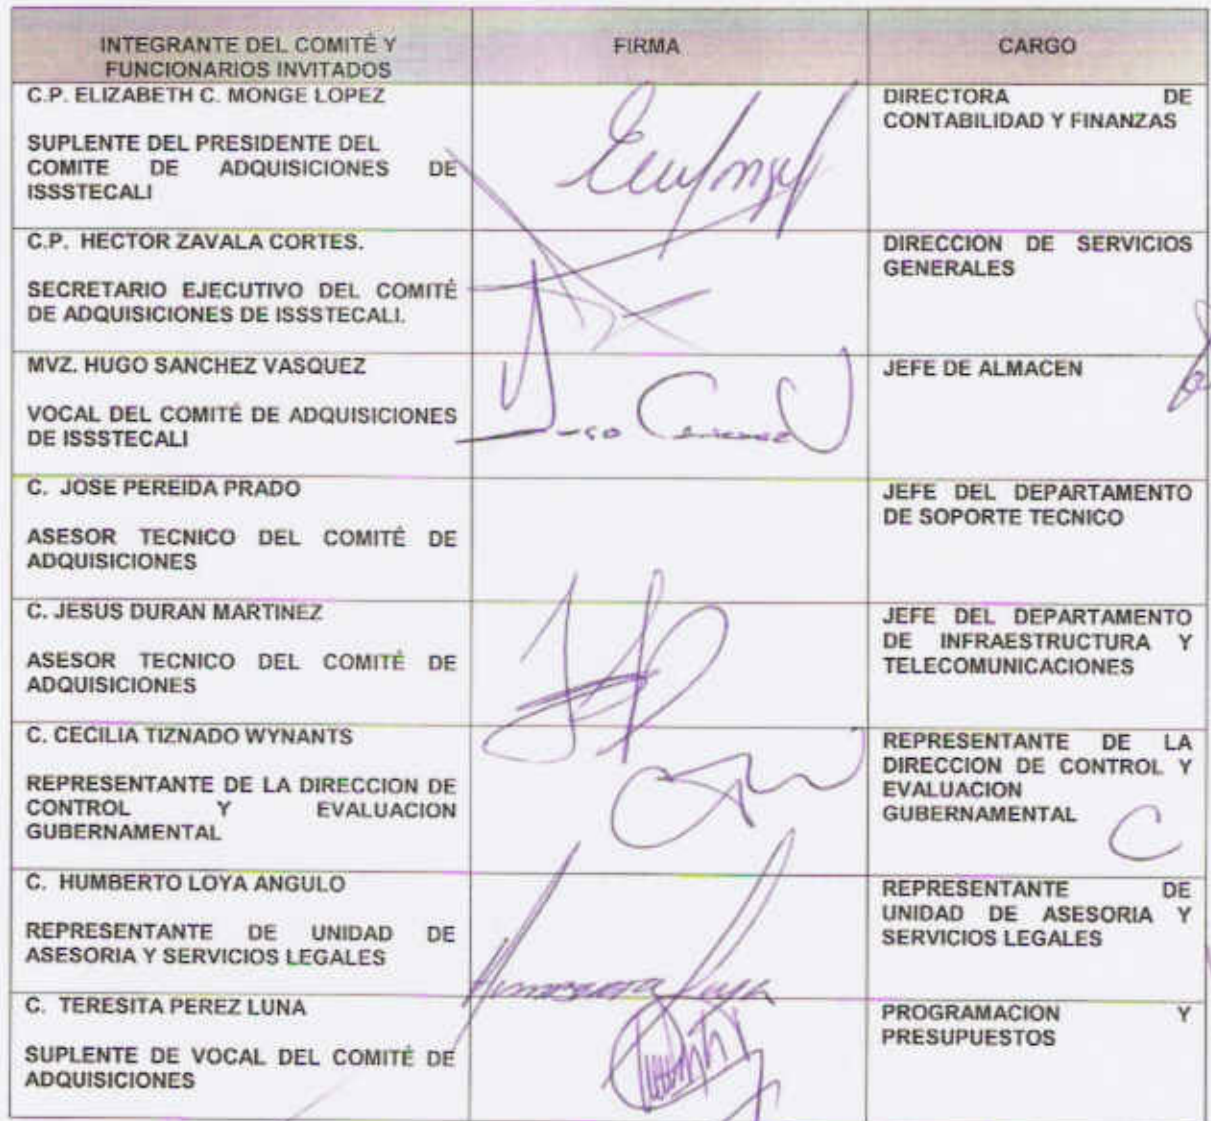 INTEGRANTE DEL COMITÉ Y
FUNCIONARIOS INVITADOS
FIRMA
CARGO
C.P. ELIZABETH C. MONGE LOPEZ
SUPLENTE DEL PRESIDENTE DEL
COMITE DE ADQUISICIONES DE
ISSSTECALI
DIRECTORA DE
CONTABILIDAD Y FINANZAS
C.P. HECTOR ZAVALA CORTES.
SECRETARIO EJECUTIVO DEL COMITÉ
DE ADQUISICIONES DE ISSSTECALI.
DIRECCION DE SERVICIOS
GENERALES
MVZ. HUGO SANCHEZ VASQUEZ
VOCAL DEL COMITÉ DE ADQUISICIONES
DE ISSSTECALI
JEFE DE ALMACEN
C. JOSE PEREIDA PRADO
ASESOR TECNICO DEL COMITÉ DE
ADQUISICIONES
JEFE DEL DEPARTAMENTO
DE SOPORTE TECNICO
C. JESUS DURAN MARTINEZ
ASESOR TECNICO DEL COMITÉ DE
ADQUISICIONES
JEFE DEL DEPARTAMENTO
DE INFRAESTRUCTURA Y
TELECOMUNICACIONES
C. CECILIA TIZNADO WYNANTS
REPRESENTANTE DE LA DIRECCION DE
CONTROL Y EVALUACION
GUBERNAMENTAL
REPRESENTANTE DE LA
DIRECCION DE CONTROL Y
EVALUACION
GUBERNAMENTAL
C. HUMBERTO LOYA ANGULO
REPRESENTANTE DE UNIDAD DE
ASESORIA Y SERVICIOS LEGALES
REPRESENTANTE DE
UNIDAD DE ASESORIA Y
SERVICIOS LEGALES
C. TERESITA PEREZ LUNA
SUPLENTE DE VOCAL DEL COMITÉ DE
ADQUISICIONES
PROGRAMACION Y
PRESUPUESTOS